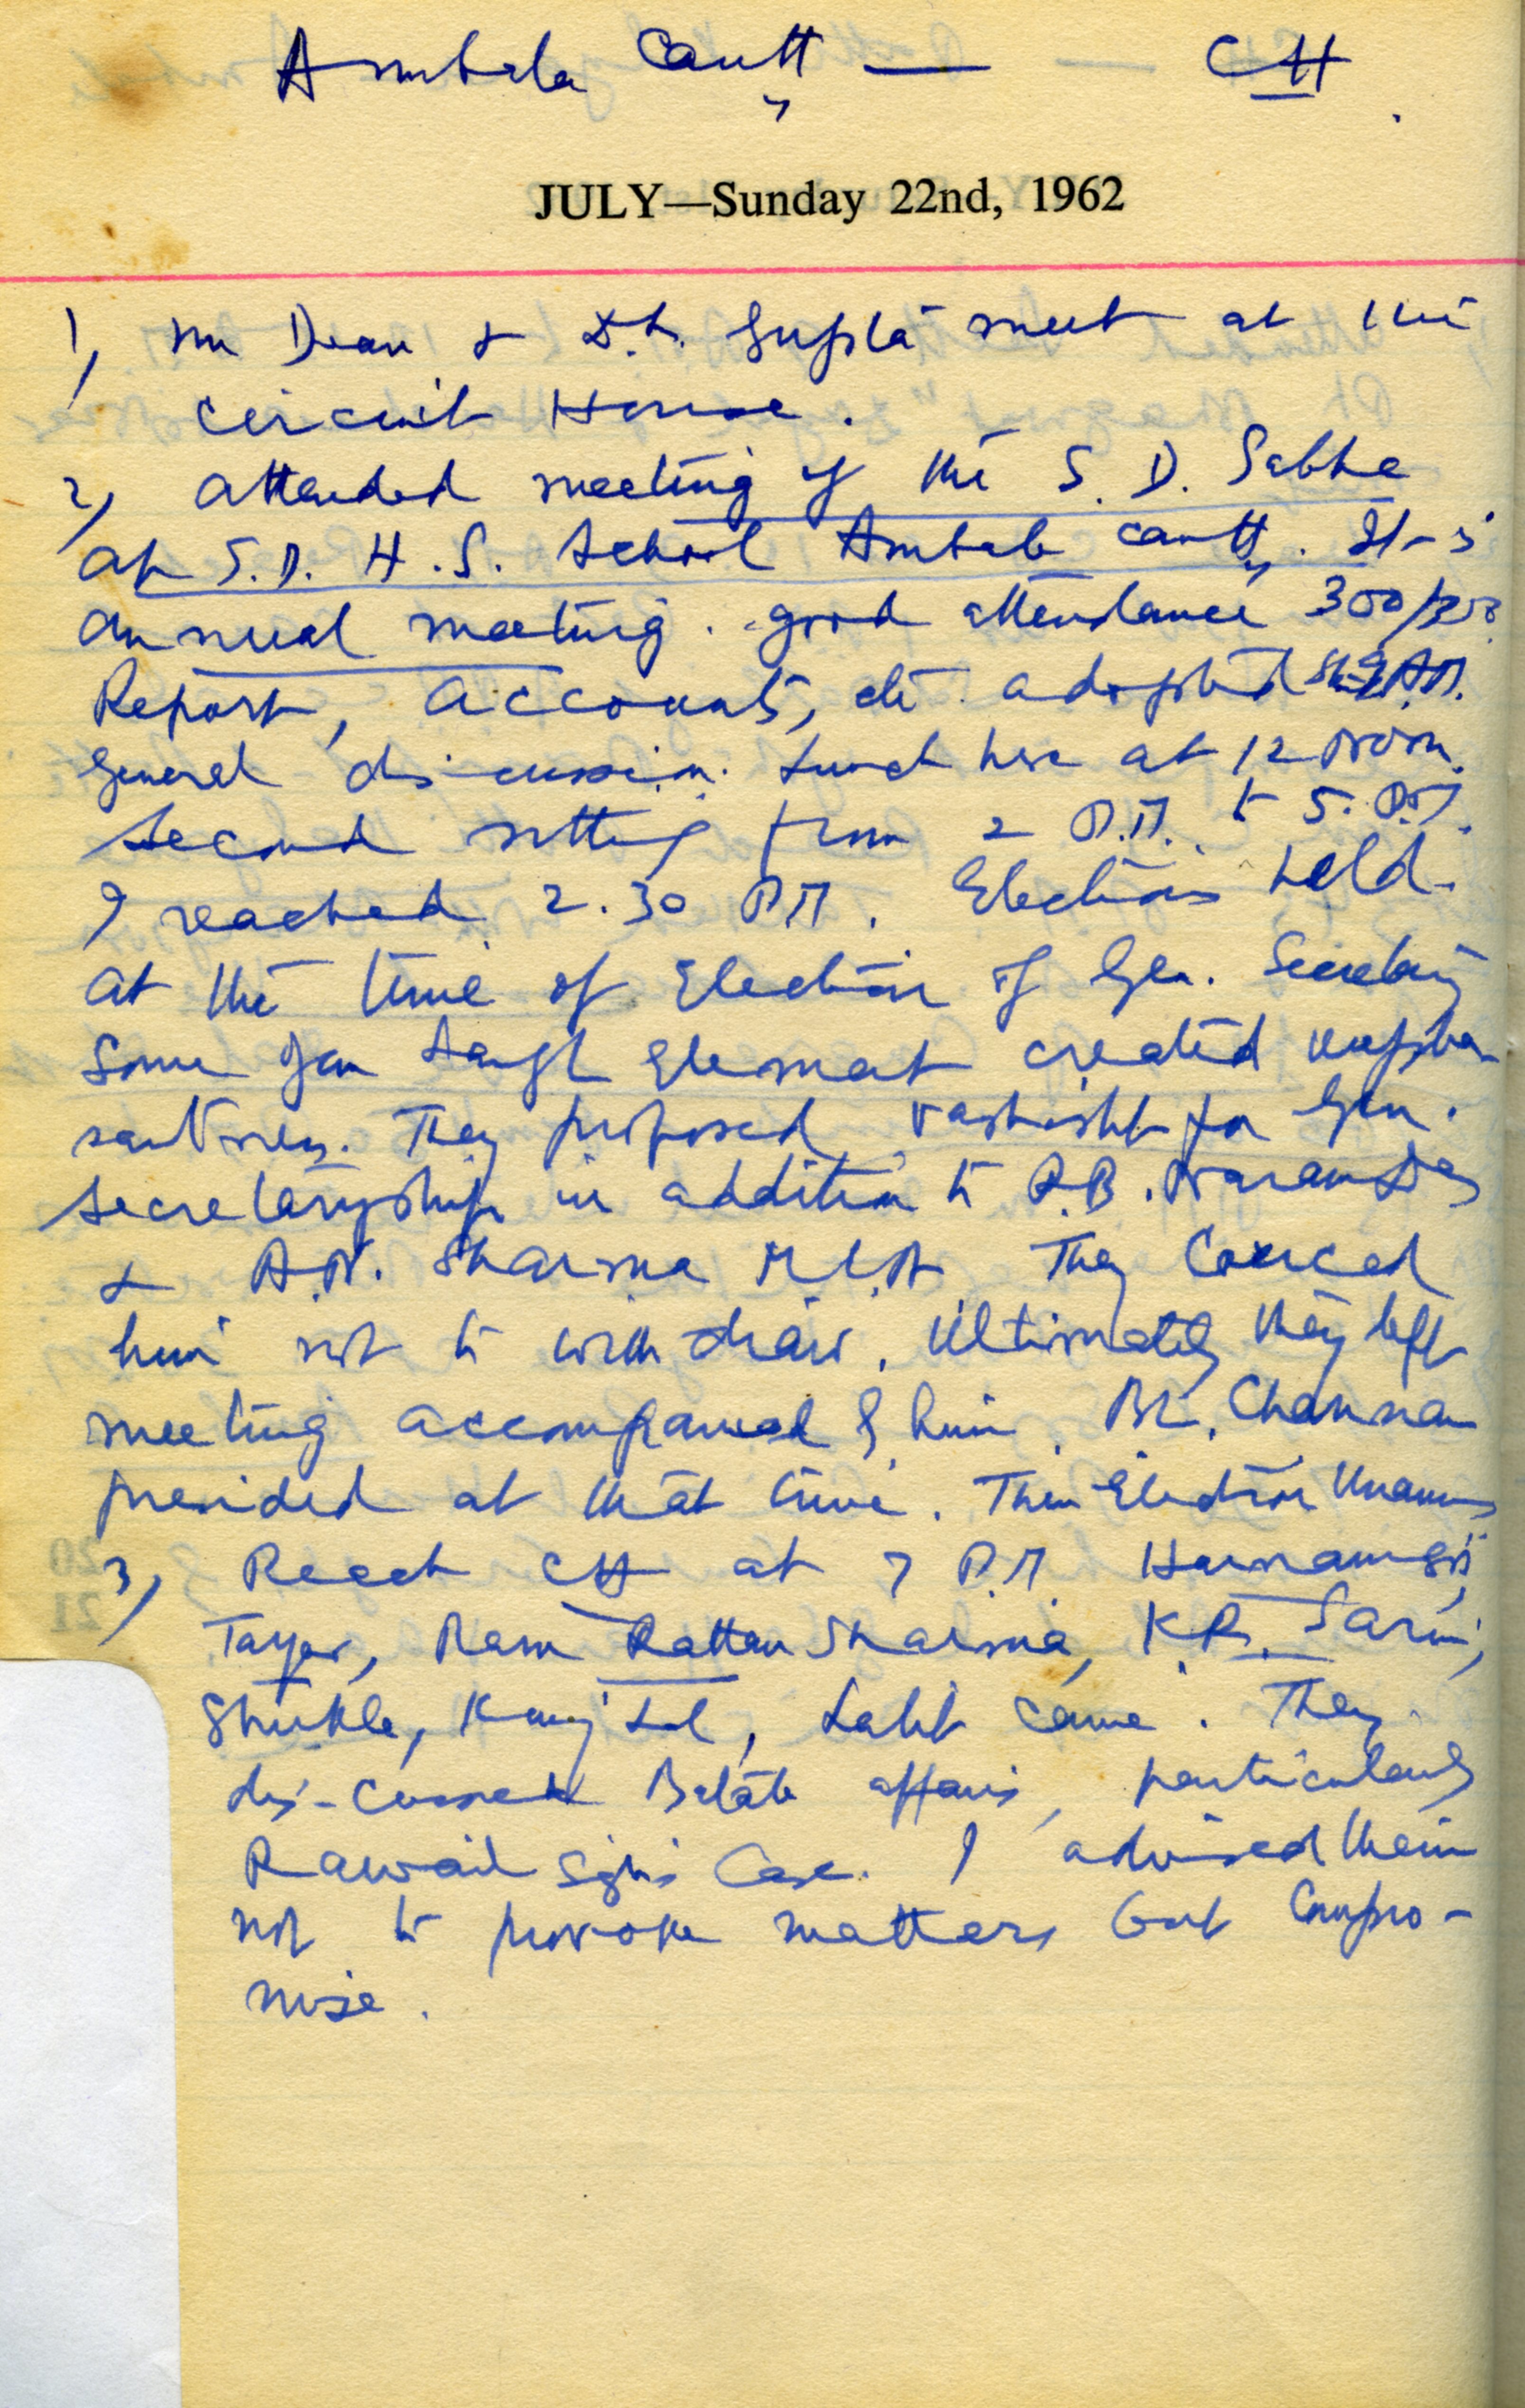 Ambala Cantt — CH
JULY—Sunday 22nd, 1962
1) Mr Dean & D.L. Gupta meet at the
Circuit House.
2) Attended meeting of the S. D. Sabha
at S.D. H.S. School Ambala Cantt. It is
annual meeting. good attendance 300/
Report, Accounts, etc. adopted
General discussion. Lunch here at 12 Noon.
Second sitting from 2 P.M. to 5. P.M.
I reached 2.30 P.M. Elections held.
At the time of Election of Gen. Secretary
Some Jan Sangh Element created unplea-
santness. They proposed Vashisht for Gen.
Secretaryship in addition to R.B. Narain Das
& A.N. Sharma M.L.A. They Coerced
him not to withdraw. Ultimately they left
meeting accompanied by him. Channan
presided at that time. Then Election
3) Reach CH at 7 P.M.
Ram Rattan Sharma, K.R.
Shukla, Lalit came. They
dis-cussed affairs, particularly
Case. I advised them
not to provoke matters but Compro-
mise.